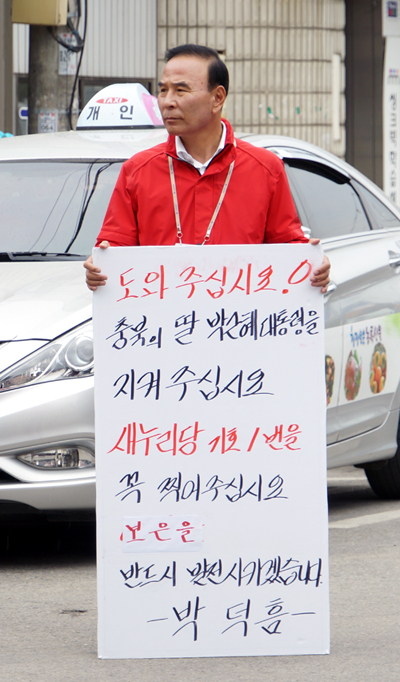 TAXI
개인
도와 주십시요.!
충북의 딸 박근혜대통령을
지켜 주십시요
새누리당 기호 1번을
꼭 찍어주십시요
보은을
반드시 발전시키겠습니다.
-박 덕흠-